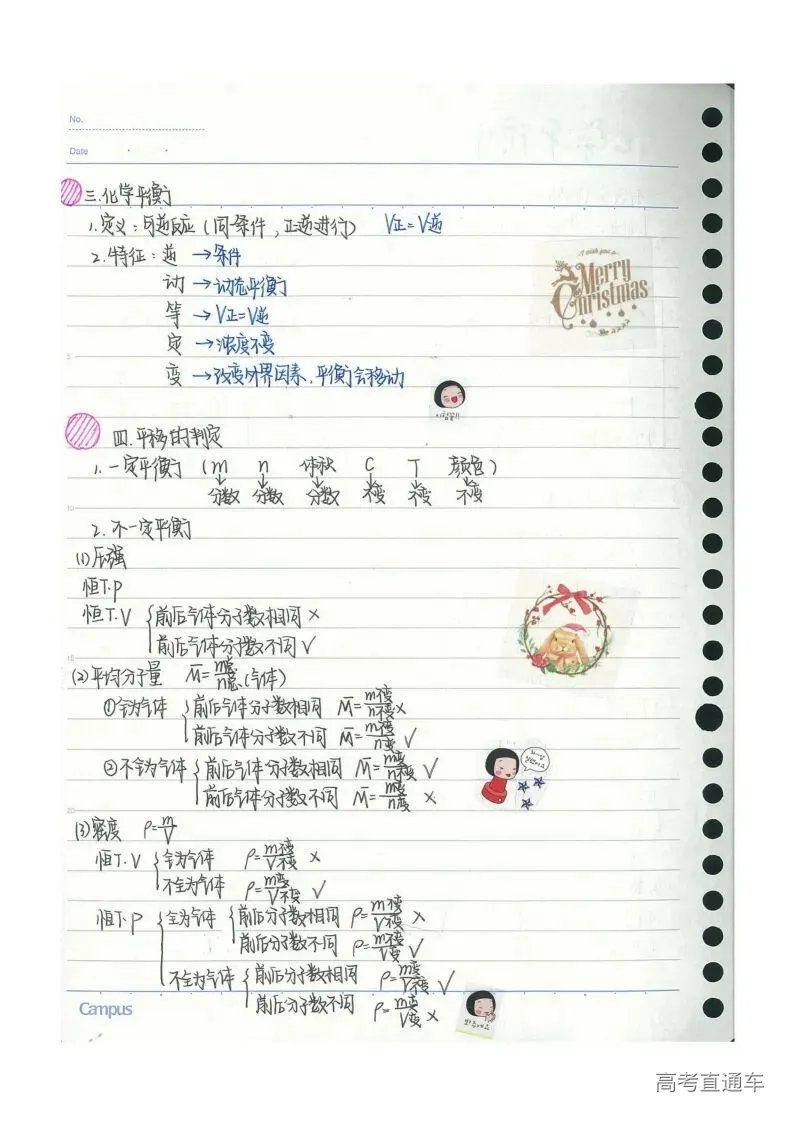 No.
Date
三.化学平衡
1.定义:可逆反应(同条件,正逆进行) V正=V逆
2.特征:逆→条件
动→动态平衡
等→V正=V逆
定→浓度不变
变→改变外界因素,平衡会移动
I wish you a
Merry
Christmas
四.平移的判定
1.一定平衡(m n 体积 C T 颜色)
↓分数 ↓分数 ↓分数 ↓不变 ↓不变 ↓不变
2.不一定平衡
(1)压强
恒T.P
恒T.V {前后气体分子数相同×
前后气体分子数不同√
(2)平均分子量 M̄=m总/n总(气体)
①全为气体 {前后气体分子数相同 M̄=m不变/n不变×
前后气体分子数不同 M̄=m不变/n变√
②不全为气体{前后气体分子数相同 M̄=m变/n不变√
前后气体分子数不同 M̄=m变/n变×
(3)密度 ρ=m/V
恒T.V {全为气体 ρ=m不变/V不变×
不全为气体 ρ=m变/V不变√
恒T.P {全为气体 {前后分子数相同 ρ=m不变/V不变×
前后分子数不同 ρ=m不变/V变√
不全为气体 {前后分子数相同 ρ=m变/V不变√
前后分子数不同 ρ=m变/V变×
Campus
高考直通车